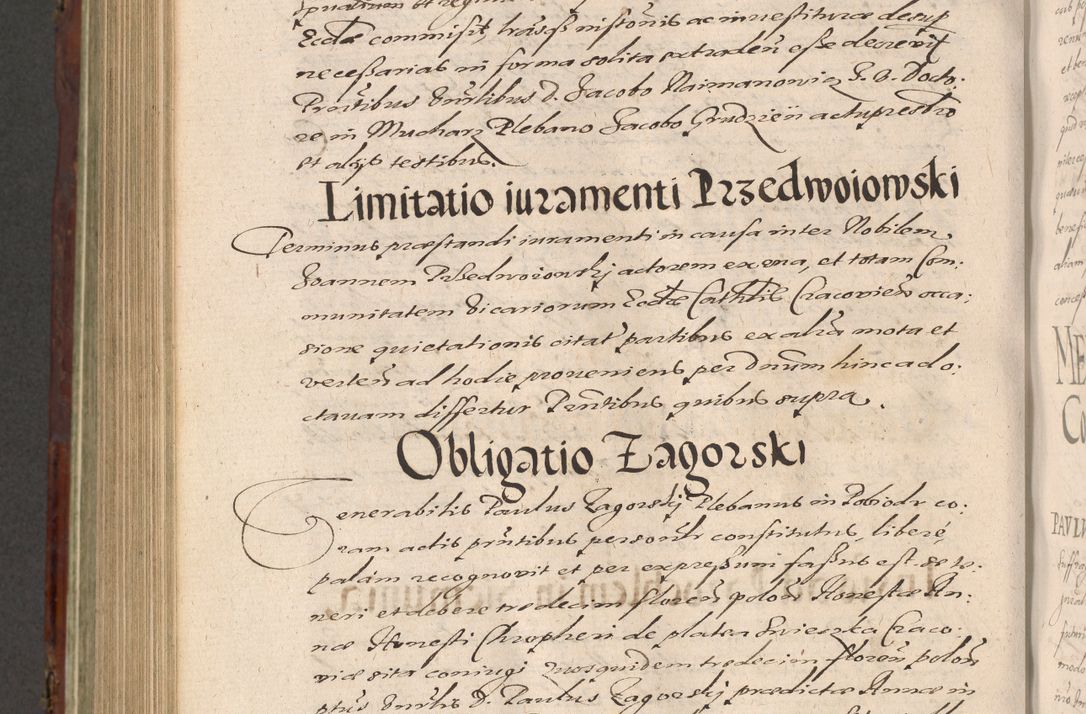 Ecclae commisit, trāsſs missionis ac investiturae desup
necessarias in forma solita extraden̄ esse decrevit
Prn̄tibus Dnn̄libus D. Jacobo Naimanowicz J. V. Docto:
re in Mucharz Plebano Jacobo Grudzień actu presbro
et alijs testibus.
Limitatio iuramenti Przedwoiowski
Terminus praestandi iuramenti in causa inter Nobilem
Joannem Przedwoiowskj actorem ex una, et totam Com:
munitatem Vicariorum Ecclae Cathlis Cracovien̄ occa:
sione quietationis citat partibus ex altra mota et
verten̄ ad hodie proveniens per Dnum hinc ad o:
ctavam differtur Prn̄tibus quibus supra.
Obligatio Zagorski
Venerabilis Paulus Zagorskj Plebanus in Pobiodr co:
ram actis prn̄tibus personlr constitutus, liberé
palám recognovit et per expressum fassus est se te:
neri et debere tredecim floren̄ polon̄ Honestae An:
nae Honesti Chrophori de platea Swieczka Craco:
viae sita coniugi quosquidem tredecim floren̄ polon̄
D. Paulus Zagorskj praedictae Annae in